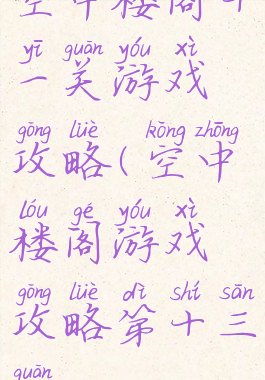 空中楼阁十
yī guān yóu xì
一关游戏
gōng lüè kōng zhōng
攻略(空中
lóu gé yóu xì
楼阁游戏
gōng lüè dì shí sān
攻略第十三
guān